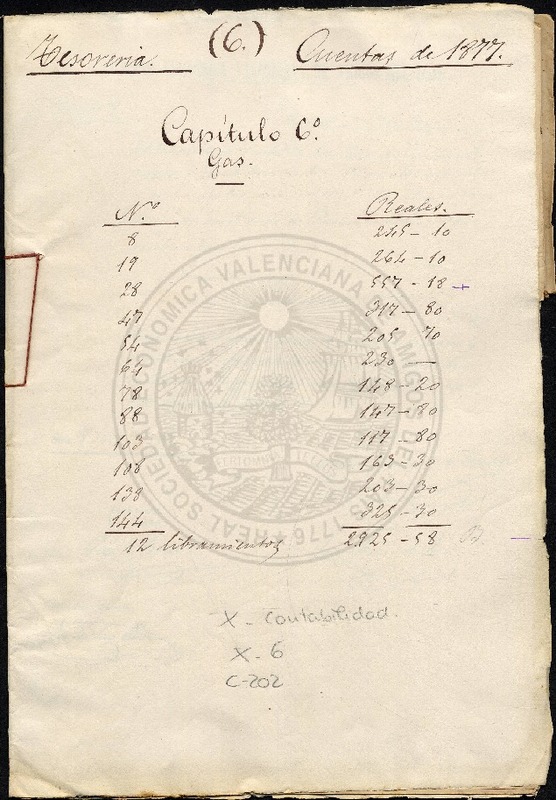 (6.)
Tesoreria. Cuentas de 1877.
Capítulo 6º
Gas.
N.º Reales.
8 245 - 10
19 264 - 10
28 557 - 18 +
47 317 - 80
54 205 - 70
64 230 —
78 148 - 20
88 147 - 80
103 117 - 80
108 163 - 30
203 - 30
144 325 - 30
12 libramientos 2925 - 58
X - Contabilidad.
X - 6
C-202
REAL SOCIEDAD ECONOMICA VALENCIANA DE AMIGOS DEL PAIS 1776